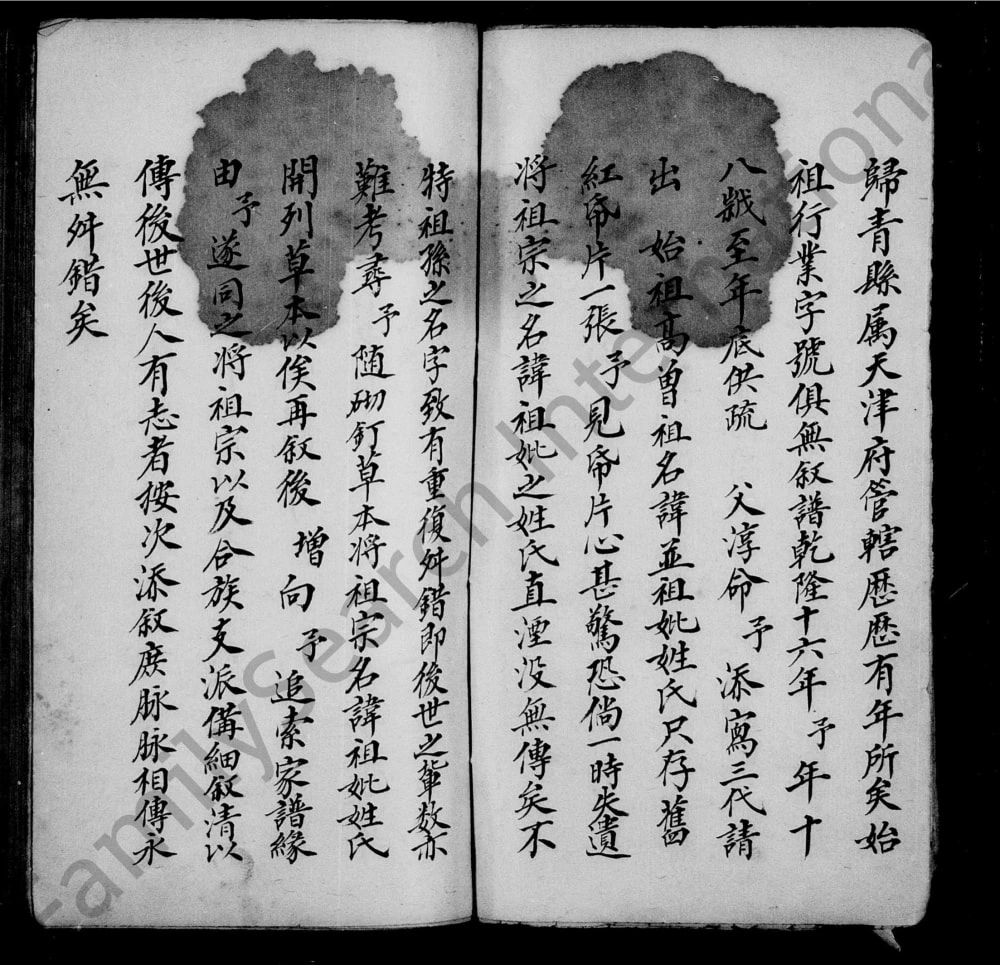 歸青縣属天津府管轄歷歷有年所矣始
祖行業字號俱無叙譜乾隆十六年予年十
八歲至年底供疏 父淳命予添寫三代請
出 始祖高曾祖名諱並祖妣姓氏尺存舊
紅帋片一張予見帋片心甚驚恐倘一時失遺
将祖宗之名諱祖妣之姓氏直湮没無傳矣不
特祖孫之名字致有重復舛錯即後世之輩数亦
難考尋予随砌釘草本将祖宗名諱祖妣姓氏
開列草本以俟再叙後 增向予追索家譜緣
由予遂同之将祖宗以及合族支派俻細叙清以
傳後世後人有志者按次添叙庶脉脉相傳永
無舛錯矣
FamilySearch International